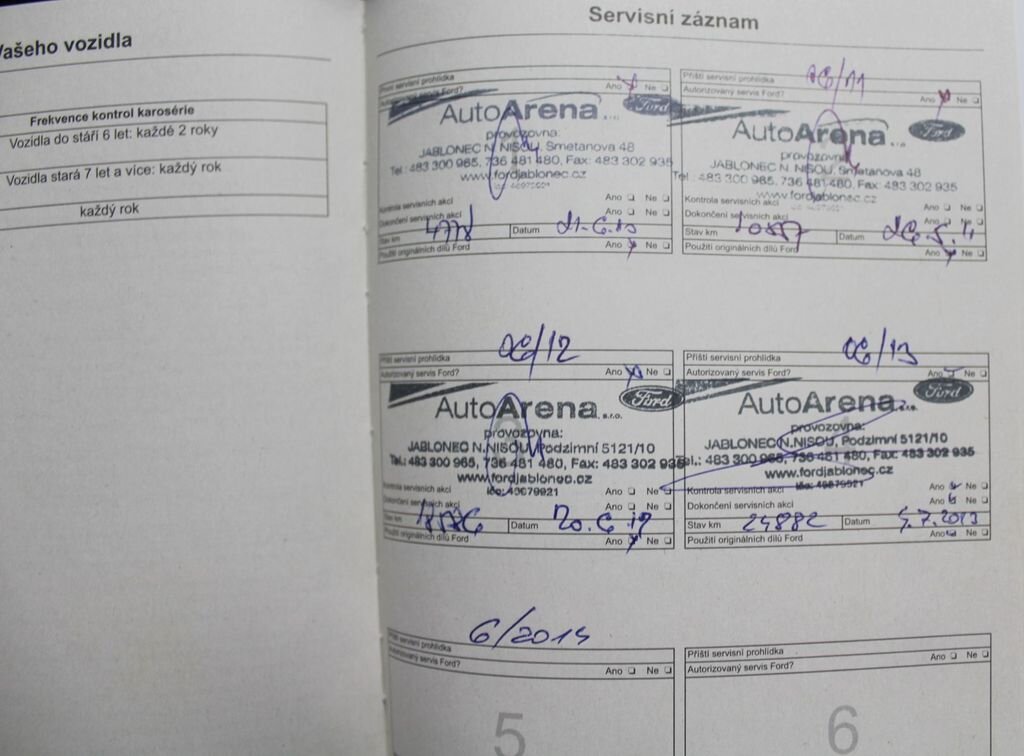 Vašeho vozidla
Frekvence kontrol karosérie
Vozidla do stáří 6 let: každé 2 roky
Vozidla stará 7 let a více: každý rok
každý rok
Servisní záznam
servisní prohlídka
Ano Ne
AutoArena
Ford
provozovna:
JABLONEC N. NISOU, Smetanova 48
Tel.: 483 300 965, 736 481 480, Fax: 483 302 935
www.fordjablonec.cz
Kontrola servisních akcí Ano Ne
Dokončení servisních akcí Ano Ne
Stav km Datum 21.6.10
Použití originálních dílů Ford Ano Ne
Příští servisní prohlídka 06/11
Autorizovaný servis Ford? Ano Ne
AutoArena
Ford
provozovna
JABLONEC N. NISOU, Smetanova 48
Tel.: 483 300 965, 736 481 480, Fax: 483 302 935
www.fordjablonec.cz
Kontrola servisních akcí Ano Ne
Dokončení servisních akcí Ano Ne
Stav km Datum
Použití originálních dílů Ford Ano Ne
Příští servisní prohlídka 06/12
Autorizovaný servis Ford? Ano Ne
AutoArena s.r.o.
Ford
provozovna:
JABLONEC N.NISOU, Podzimní 5121/10
Tel.: 483 300 965, 736 481 480, Fax: 483 302 935
www.fordjablonec.cz
Kontrola servisních akcí Ano Ne
Dokončení servisních akcí Ano Ne
Stav km Datum 20.6.12
Použití originálních dílů Ford Ano Ne
Příští servisní prohlídka 06/13
Autorizovaný servis Ford? Ano Ne
AutoArena s.r.o.
Ford
provozovna:
JABLONEC N.NISOU, Podzimní 5121/10
Tel.: 483 300 965, 736 481 480, Fax: 483 302 935
www.fordjablonec.cz
Kontrola servisních akcí Ano Ne
Dokončení servisních akcí Ano Ne
Stav km 24882 Datum 4.7.2013
Použití originálních dílů Ford Ano Ne
Příští servisní prohlídka 6/2014
Autorizovaný servis Ford? Ano Ne
5
Příští servisní prohlídka Ano Ne
Autorizovaný servis Ford?
6